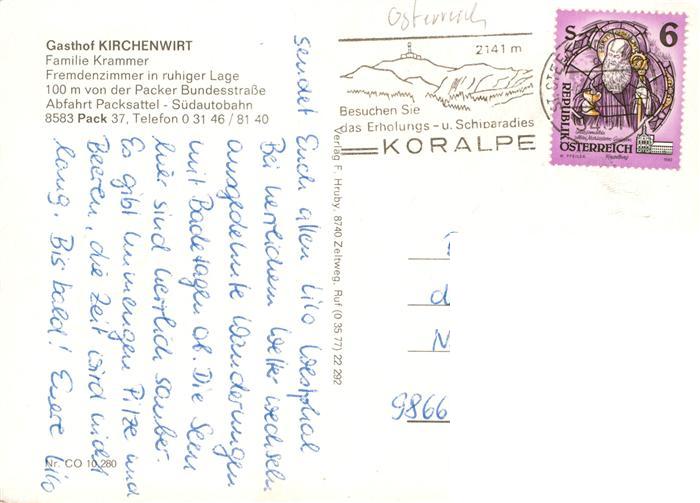 Gasthof KIRCHENWIRT
Familie Krammer
Fremdenzimmer in ruhiger Lage
100 m von der Packer Bundesstraße
Abfahrt Packsattel - Südautobahn
8583 Pack 37, Telefon 0 31 46 / 81 40
Österreich
2141 m
Besuchen Sie
das Erholungs - u. Schiparadies
KORALPE
S 6
REPUBLIK
ÖSTERREICH
Verlag F. Hruby, 8740 Zeltweg, Ruf (0 35 77) 22 292
sendet Euch allen Lilo Westphal
Bei herrlichem Wetter wechseln
ausgedehnte Wanderungen
mit Badetagen ab. Die Seen
hier sind herrlich sauber.
Es gibt Unmengen Pilze und
Beeren, die Zeit wird nicht
lang. Bis bald! Euere Lilo
d
N
9866
Nr. CO 10 280